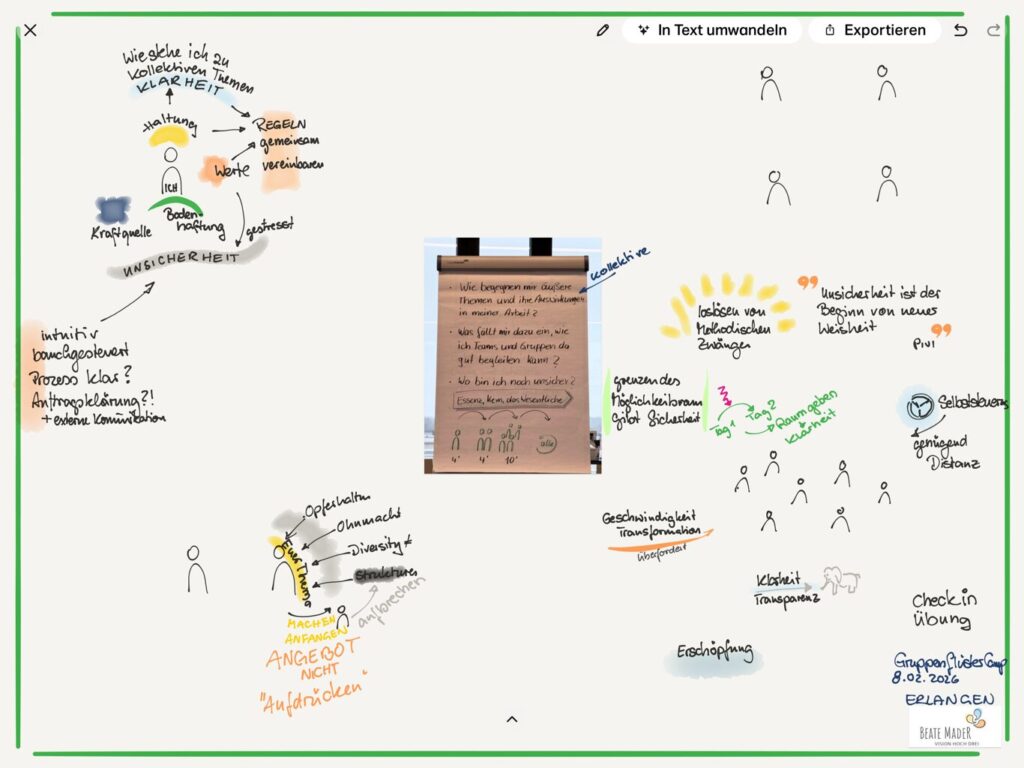 In Text umwandeln
Exportieren
Wie stehe ich zu
kollektiven Themen
KLARHEIT
Haltung
REGELN
gemeinsam
vereinbaren
Werte
ICH
Boden-
haftung
Kraftquelle
gestresst
UNSICHERHEIT
intuitiv
bauchgesteuert
Prozess klar?
Auftragsklärung?!
+ externe Kommunikation
kollektive
• Wie begegnen mir äußere
Themen und ihre Auswirkungen
in meiner Arbeit?
• Was fällt mir dazu ein, wie
ich Teams und Gruppen da
gut begleiten kann?
• Wo bin ich noch unsicher?
Essenz, Kern, das Wesentliche
alle
4' 4' 10'
loslösen von
Methodischen
Zwängen
"Unsicherheit ist der
Beginn von neuer
Weisheit"
PIVI
grenzen des
Möglichkeitsraum
gibt Sicherheit
Tag 1
Tag 2
Raum geben
Klarheit
Selbststeuerung
genügend
Distanz
Geschwindigkeit
Transformation
überfordert
Klarheit
Transparenz
Erschöpfung
Check in
Übung
Opferhaltung
Ohnmacht
Diversity ≠
Strukturen
aufbrechen
Euer Thema
MACHEN
ANFANGEN
ANGEBOT
NICHT
"Aufdrücken"
GruppenflüsterCamp
8.02.2026
ERLANGEN
BEATE MADER
VISION HOCH DREI